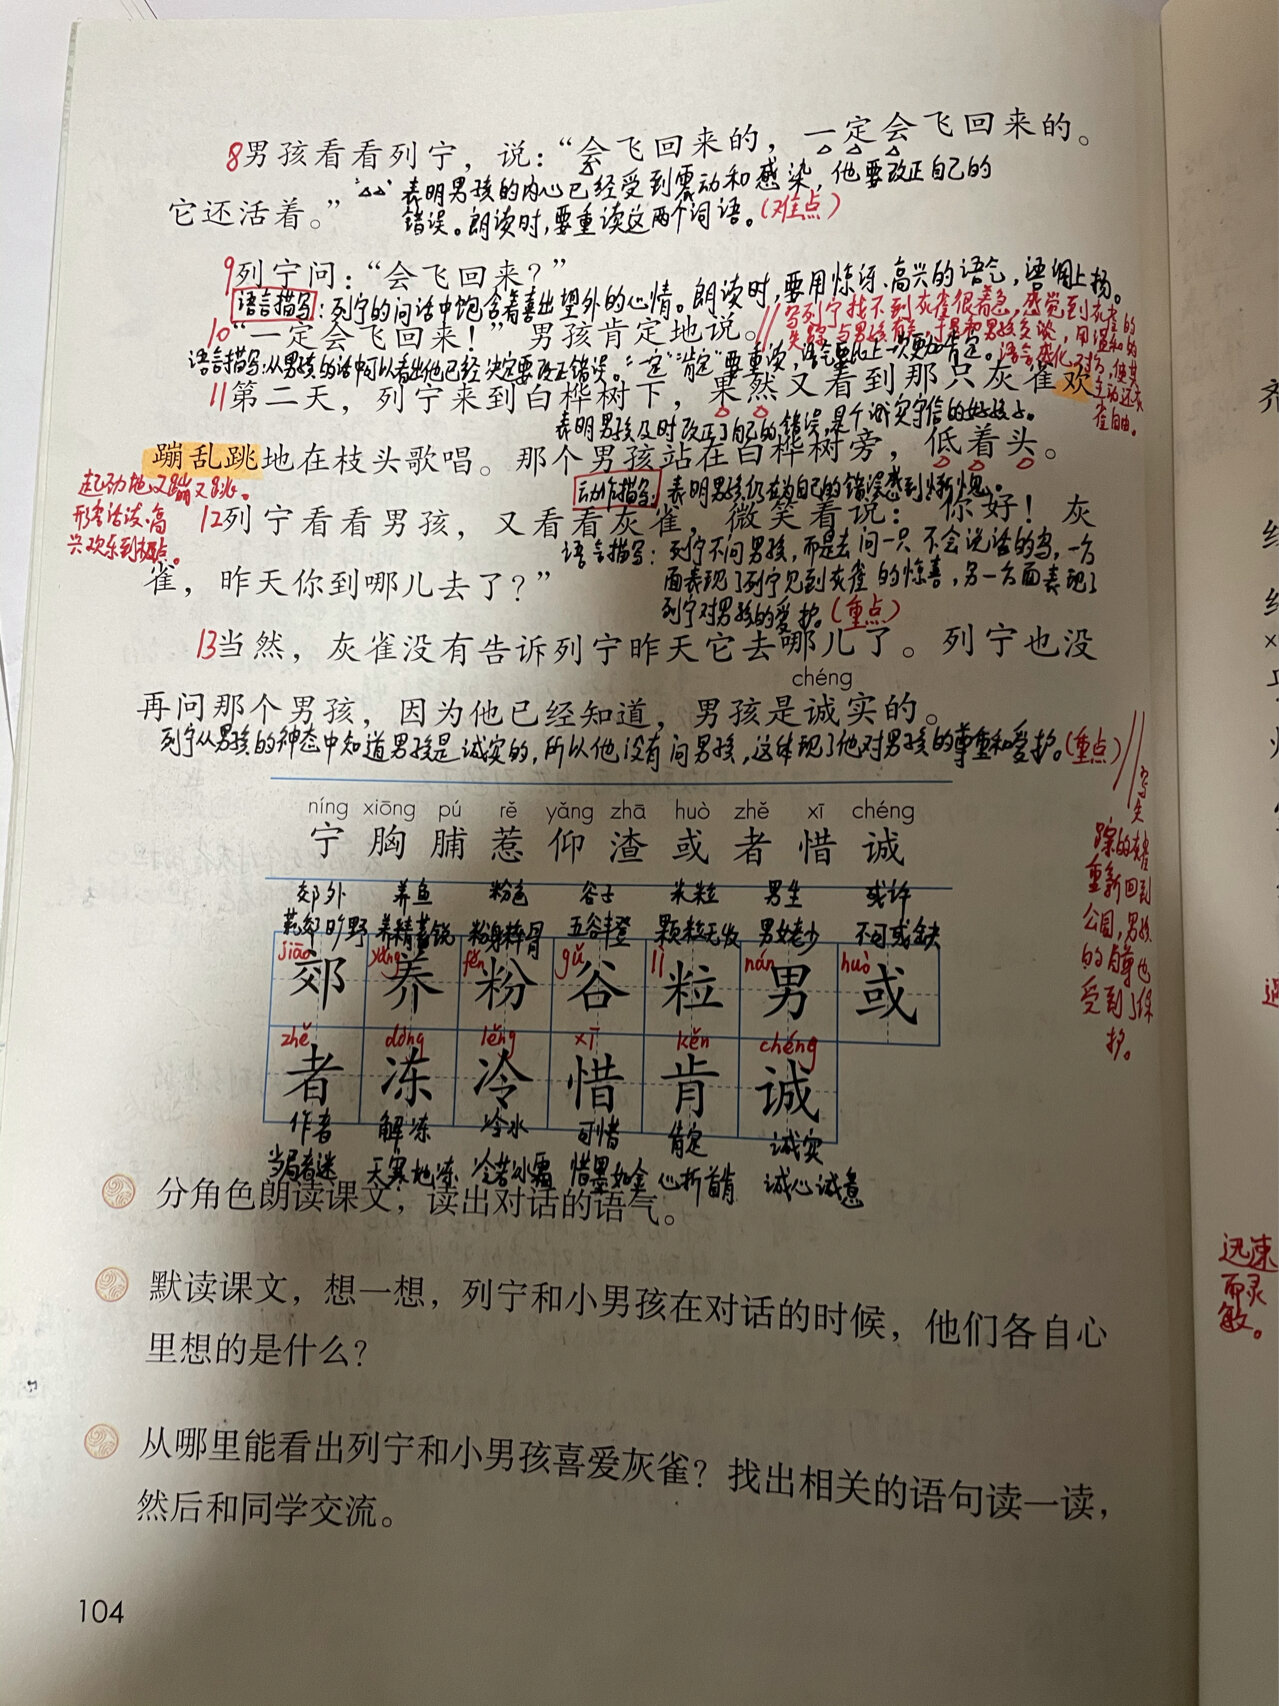 8男孩看看列宁，说：“会飞回来的，一定会飞回来的。
“△△”表明男孩的内心已经受到震动和感染，他要改正自己的
它还活着。”
错误。朗读时，要重读这两个词语。（难点）
9列宁问：“会飞回来？”
语言描写：列宁的问话中饱含着喜出望外的心情。朗读时，要用惊讶、高兴的语气，语调上扬。
10“一定会飞回来！”男孩肯定地说。
//写列宁找不到灰雀很着急，感觉到灰雀的
失踪与男孩有关，于是和男孩交谈，用温和的
语言感化了对方，使其
主动还灰
雀自由。
语言描写：从男孩的话中可以看出他已经决定要改正错误。“一定”“肯定”要重读，语气要比上一次更加肯定。
11第二天，列宁来到白桦树下，果然又看到那只灰雀欢
表明男孩及时改正了自己的错误，是个诚实守信的好孩子。
蹦乱跳地在枝头歌唱。那个男孩站在白桦树旁，低着头。
起劲地又蹦又跳。
形容活泼、高
兴欢乐到极点。
动作描写：表明男孩仍在为自己的错误感到惭愧。
12列宁看看男孩，又看看灰雀，微笑着说：“你好！灰
语言描写：列宁不问男孩，而是去问一只不会说话的鸟，一方
雀，昨天你到哪儿去了？”
面表现了列宁见到灰雀的惊喜，另一方面表现了
列宁对男孩的爱护。（重点）
13当然，灰雀没有告诉列宁昨天它去哪儿了。列宁也没
chéng
再问那个男孩，因为他已经知道，男孩是诚实的。
列宁从男孩的神态中知道男孩是诚实的，所以他没有问男孩，这体现了他对男孩的尊重和爱护。（重点）
//写失
踪的灰雀
重新回到
公园，男孩
的自尊也
受到了保
护。
níng xiōng pú rě yǎng zhā huò zhě xī chéng
宁 胸 脯 惹 仰 渣 或 者 惜 诚
郊外 养鱼 粉色 谷子 米粒 男生 或许
荒郊旷野 养精蓄锐 粉身碎骨 五谷丰登 颗粒无收 男女老少 不可或缺
jiāo yǎng fěn gǔ lì nán huò
郊 养 粉 谷 粒 男 或
zhě dòng lěng xī kěn chéng
者 冻 冷 惜 肯 诚
作者 解冻 冷水 可惜 肯定 诚实
当局者迷 天寒地冻 冷若冰霜 惜墨如金 心折首肯 诚心诚意
分角色朗读课文，读出对话的语气。
默读课文，想一想，列宁和小男孩在对话的时候，他们各自心
里想的是什么？
从哪里能看出列宁和小男孩喜爱灰雀？找出相关的语句读一读，
然后和同学交流。
104
迅速
而灵
敏。